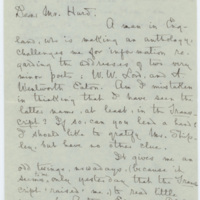 Dear Mr. Hurd,
A man in Eng-
land, who is making an anthology,
challenges me for information re-
garding the addresses of two very
minor poets, W. W. Lord, and A.
Wentworth Eaton. Am I mistaken
in thinking that I have seen the
latter name at least in the Trans-
cript? If so, can you lend a hand?
I should like to gratify Mr.
ley, but have no other clue.
It gives me an
old twinge, nowadays, because it
seems only yesterday that the Trans-
cript "raised" me; to read little